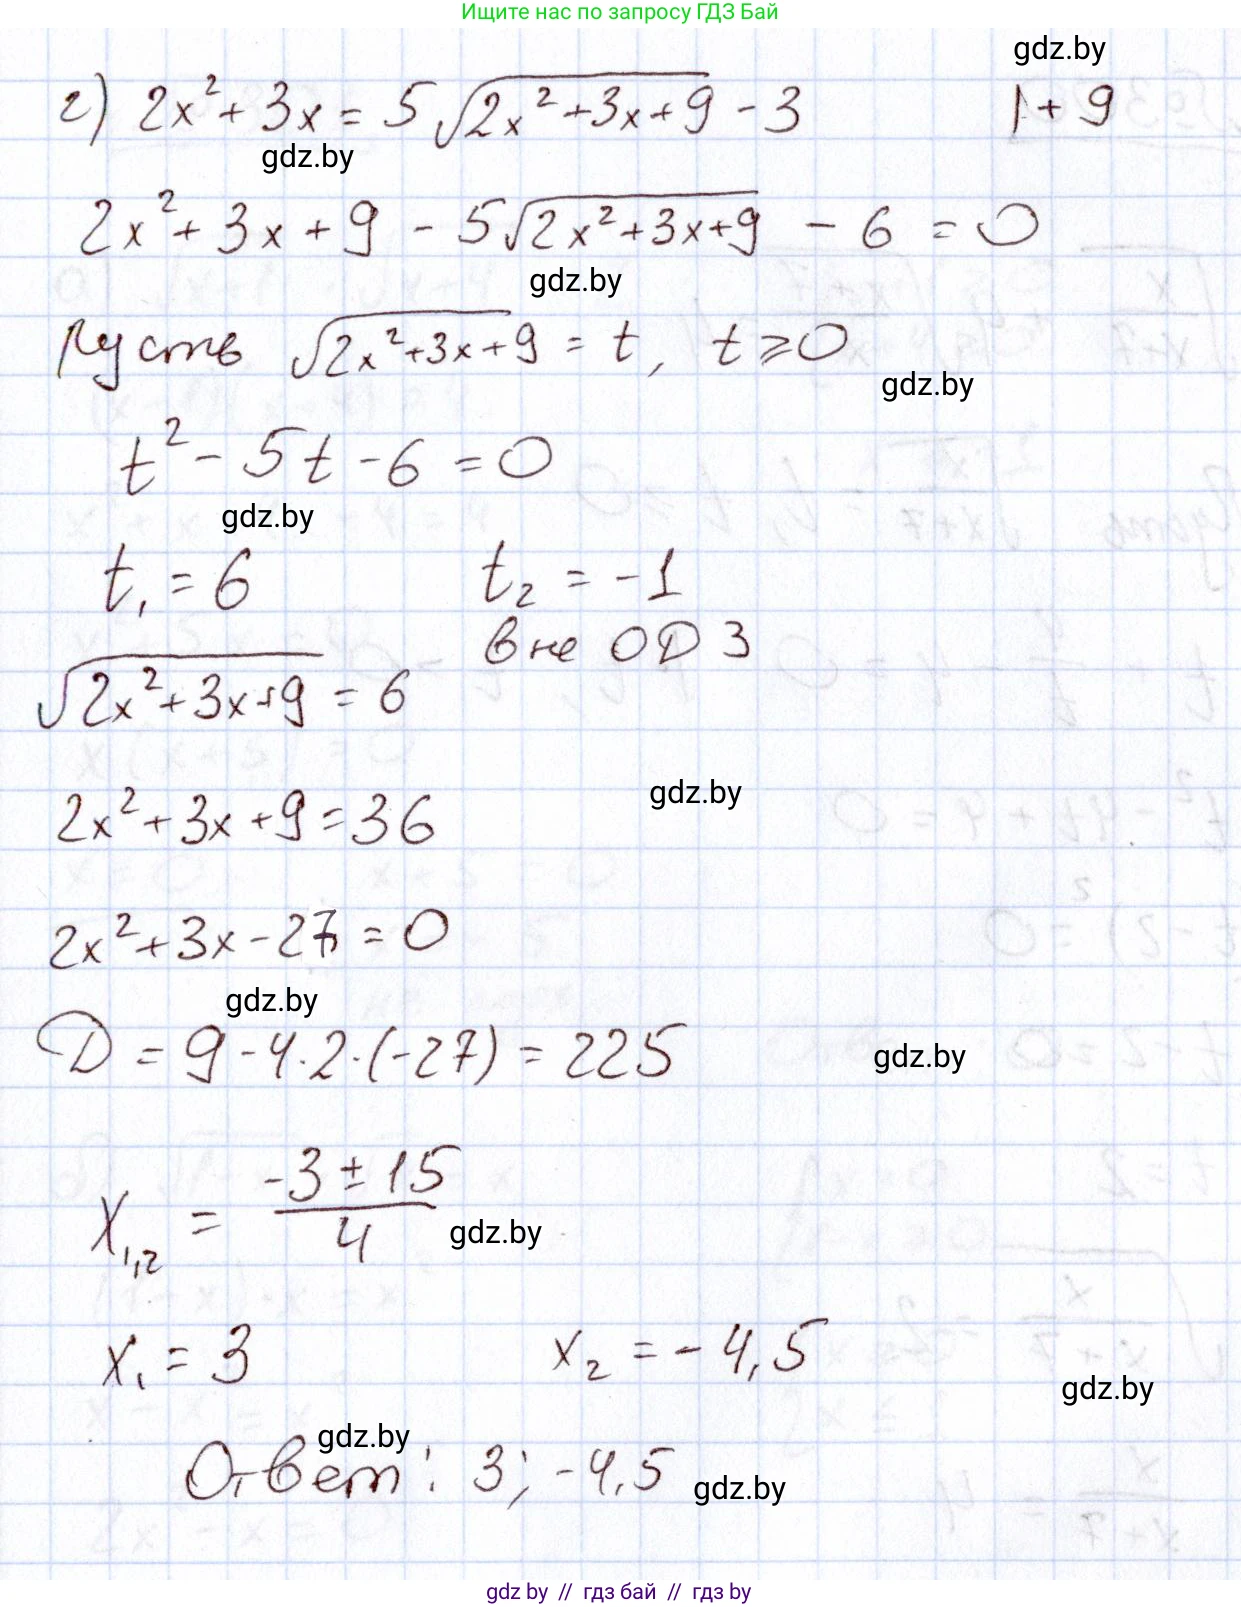 Ищите нас по запросу ГДЗ Бай
gdz.by
г) 2x² + 3x = 5√(2x² + 3x + 9) - 3 | + 9
gdz.by
2x² + 3x + 9 - 5√(2x² + 3x + 9) - 6 = 0
gdz.by
Пусть √(2x² + 3x + 9) = t, t ≥ 0
gdz.by
t² - 5t - 6 = 0
gdz.by
t₁ = 6 t₂ = -1
вне ОДЗ
√(2x² + 3x + 9) = 6
gdz.by
2x² + 3x + 9 = 36
2x² + 3x - 27 = 0
gdz.by
D = 9 - 4·2·(-27) = 225
gdz.by
x₁,₂ = (-3 ± 15)/4
gdz.by
x₁ = 3 x₂ = -4,5
gdz.by
gdz.by
Ответ: 3; -4,5
gdz.by
gdz.by // гдз бай // гдз by